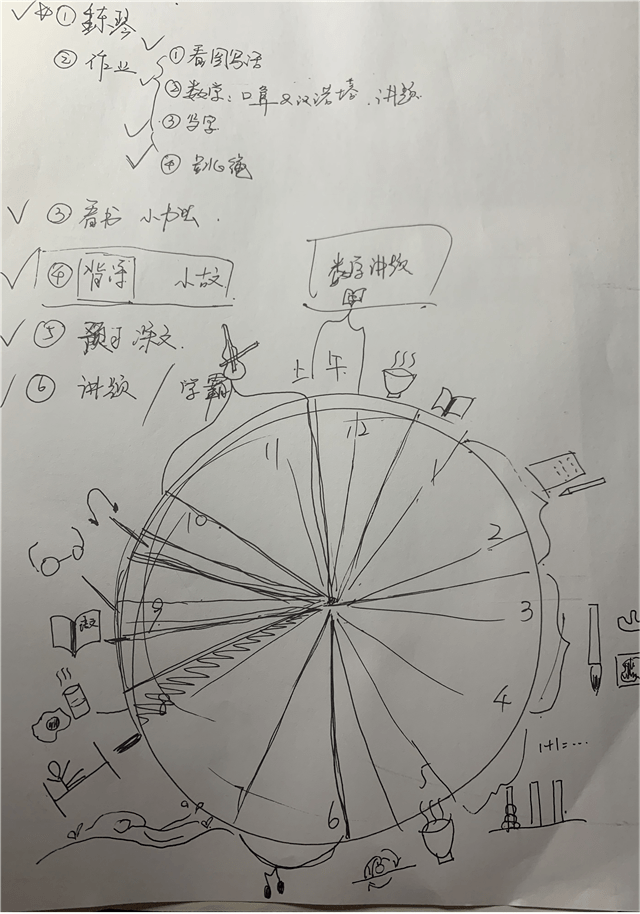 ① 练琴
② 作业
① 看图写话
② 数学：口算 汉诺塔 讲题
③ 写字
④
③ 看书 小书虫
④ 背字 小故
数学讲题
⑤ 预习课文
⑥ 讲题 / 学霸
上午
11
12
1
10
2
9
3
语文
8
4
1+1=...
5
6